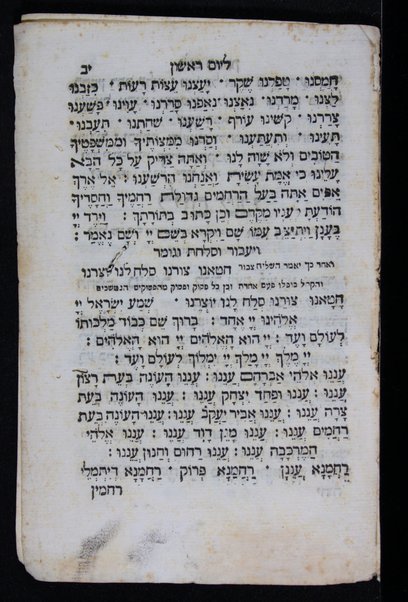 ליום ראשון יב
חָמַסְנוּ · טָפַלְנוּ שֶׁקֶר · יָעַצְנוּ עֵצוֹת רָעוֹת · כִּזַּבְנוּ
לַצְנוּ · מָרַדְנוּ · נִאַצְנוּ · נִאַפְנוּ סָרַרְנוּ · עָוִינוּ · פָּשַׁעְנוּ
צָרַרְנוּ · קִשִּׁינוּ עוֹרֶף · רָשַׁעְנוּ · שִׁחַתְנוּ · תִּעַבְנוּ ·
תָּעִינוּ · וְתִעְתַּעְנוּ · וְסַרְנוּ מִמִּצְוֹתֶיךָ וּמִמִּשְׁפָּטֶיךָ
הַטּוֹבִים וְלֹא שָׁוָה לָנוּ · וְאַתָּה צַדִּיק עַל כָּל הַבָּא
עָלֵינוּ כִּי אֱמֶת עָשִׂיתָ וַאֲנַחְנוּ הִרְשָׁעְנוּ : אֵל אֶרֶךְ
אַפַּיִם אַתָּה בַּעַל הָרַחֲמִים גְּדוּלַּת רַחֲמֶיךָ וַחֲסָדֶיךָ
הוֹדַעְתָּ לֶעָנָיו מִקֶּדֶם וכֵן כָּתוּב בְּתוֹרָתֶךָ : וַיֵּרֶד יְיָ
בֶּעָנָן וַיִּתְיַצֵּב עִמּוֹ שָׁם וַיִּקְרָא בְשֵׁם יְיָ וְשָׁם נֶאֱמַר :
ויעבור וסלחת וגומר
ואחר כך יאמר השליח צבור חטאנו צורנו סלח לנו יוצרנו
והקהל כופלו פעם אחרת וכן כל פסוק ופסוק מהפסוקים הנמשכים
חָטָאנוּ צוּרֵנוּ סְלַח לָנוּ יוֹצְרֵנוּ · שְׁמַע יִשְׂרָאֵל יְיָ
אֱלֹהֵינוּ יְיָ אֶחָד : בָּרוּךְ שֵׁם כְּבוֹד מַלְכוּתוֹ
לְעוֹלָם וָעֶד : יְיָ הוּא הָאֱלֹהִים יְיָ הוּא הָאֱלֹהִים :
יְיָ מֶלֶךְ יְיָ מָלָךְ יְיָ יִמְלוֹךְ לְעוֹלָם וָעֶד :
עֲנֵנוּ אֱלֹהֵי אַבְרָהָם עֲנֵנוּ : עֲנֵנוּ הָעוֹנֶה בְּעֵת רָצוֹן
עֲנֵנוּ : עֲנֵנוּ וּפַחַד יִצְחָק עֲנֵנוּ : עֲנֵנוּ הָעוֹנֶה בְּעֵת
צָרָה עֲנֵנוּ : עֲנֵנוּ אֲבִיר יַעֲקֹב עֲנֵנוּ : עֲנֵנוּ הָעוֹנֶה בְּעֵת
רַחֲמִים עֲנֵנוּ : עֲנֵנוּ מָגֵן דָּוִד עֲנֵנוּ : עֲנֵנוּ אֱלֹהֵי
הַמֶּרְכָּבָה עֲנֵנוּ : עֲנֵנוּ רַחוּם וְחַנּוּן עֲנֵנוּ :
רַחֲמָנָא עֲנֵנָן · רַחֲמָנָא פְּרוֹק · רַחֲמָנָא דְּיִתְמְלֵי
רחמין